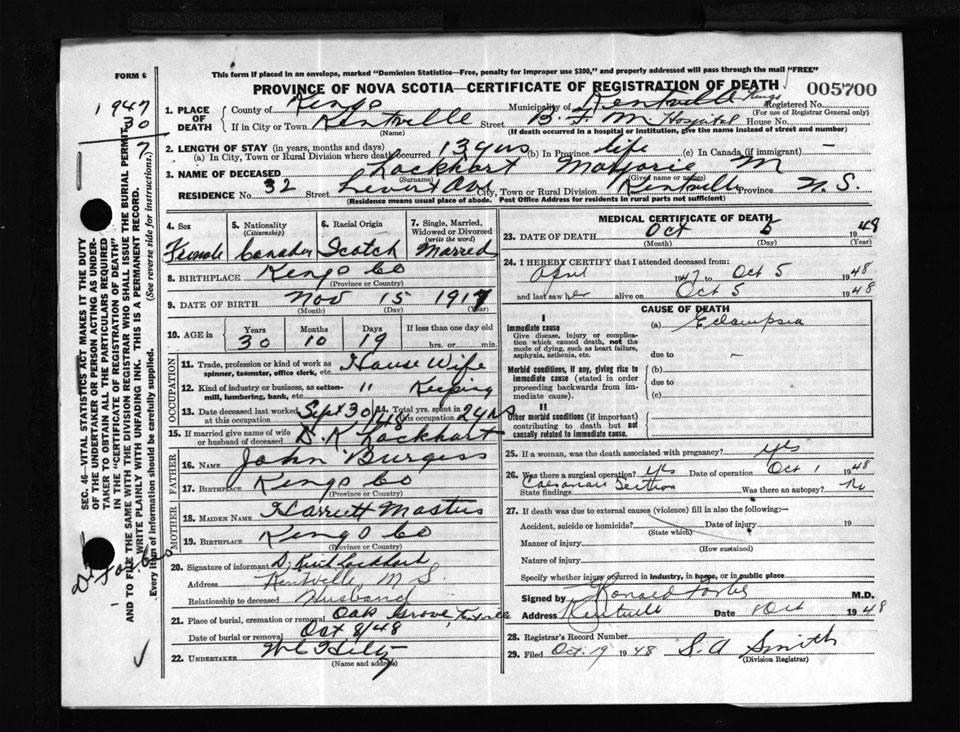 FORM 6
This form if placed in an envelope, marked "Dominion Statistics—Free, penalty for improper use $300," and properly addressed will pass through the mail "FREE"
PROVINCE OF NOVA SCOTIA—CERTIFICATE OF REGISTRATION OF DEATH
005700
1. PLACE OF DEATH
County of Kings Municipality of Kentville Kings Registered No.
(For use of Registrar General only)
If in City or Town Kentville Street B. F. M Hospital House No.
(Name) (If death occurred in a hospital or institution, give the name instead of street and number)
2. LENGTH OF STAY (in years, months and days)
(a) In City, Town or Rural Division where death occurred 13 yrs (b) In Province life (c) In Canada (if immigrant) —
3. NAME OF DECEASED Lockhart Marjorie M
(Surname) (Given name or names)
RESIDENCE No. 32 Street Ave City, Town or Rural Division Kentville Province N. S.
(Residence means usual place of abode. Post Office Address for residents in rural parts not sufficient)
4. Sex Female
5. Nationality (Citizenship) Canadian
6. Racial Origin Scotch
7. Single, Married, Widowed or Divorced (write the word) Married
8. BIRTHPLACE Kings Co
(Province or Country)
9. DATE OF BIRTH Nov 15 1917
(Month) (Day) (Year)
10. AGE in Years Months Days If less than one day old
30 10 19 hrs. or min.
OCCUPATION
11. Trade, profession or kind of work as spinner, teamster, office clerk, etc. House Wife
12. Kind of industry or business, as cotton-mill, lumbering, bank, etc. " Keeping
13. Date deceased last worked at this occupation Sept 30/48 14. Total yrs. spent in this occupation 2 yrs
15. If married give name of wife or husband of deceased D. K. Lockhart
FATHER
16. NAME John Burgess
17. BIRTHPLACE Kings Co
(Province or Country)
MOTHER
18. MAIDEN NAME Harriett Masters
19. BIRTHPLACE Kings Co
(Province or Country)
20. Signature of informant D. Keith Lockhart
Address Kentville, N S.
Relationship to deceased Husband
21. Place of burial, cremation or removal Oak Grove, Kentville
Date of burial or removal Oct 8/48
22. UNDERTAKER
(Name and address)
MEDICAL CERTIFICATE OF DEATH
23. DATE OF DEATH Oct 5 1948
(Month) (Day) (Year)
24. I HEREBY CERTIFY that I attended deceased from:
April 1947 to Oct 5 1948
and last saw her alive on Oct 5 1948
CAUSE OF DEATH
I
Immediate cause (a) Eclampsia
Give disease, injury or complication which caused death, not the mode of dying, such as heart failure, asphyxia, asthenia, etc.
due to —
Morbid conditions, if any, giving rise to immediate cause (stated in order proceeding backwards from immediate cause).
(b)
due to
(c)
II
Other morbid conditions (if important) contributing to death but not causally related to immediate cause.
25. If a woman, was the death associated with pregnancy? yes
26. Was there a surgical operation? yes Date of operation Oct 1 1948
State findings Caesarian Section Was there an autopsy? No
27. If death was due to external causes (violence) fill in also the following:—
Accident, suicide or homicide? Date of injury 19
(State which)
Manner of injury
(How sustained)
Nature of injury
Specify whether injury occurred in industry, in home, or in public place
Signed by M.D.
Address Kentville Date Oct 1948
28. Registrar's Record Number
29. Filed Oct. 19 1948 S. A Smith
(Division Registrar)
SEC. 46—VITAL STATISTICS ACT MAKES IT THE DUTY
OF THE UNDERTAKER OR PERSON ACTING AS UNDER-
TAKER TO OBTAIN ALL THE PARTICULARS REQUIRED
IN THE "CERTIFICATE OF REGISTRATION OF DEATH"
AND TO FILE THE SAME WITH THE DIVISION REGISTRAR WHO SHALL ISSUE THE BURIAL PERMIT.
WRITE PLAINLY WITH UNFADING INK. THIS IS A PERMANENT RECORD.
Every item of information should be carefully supplied. (See reverse side for instructions.)